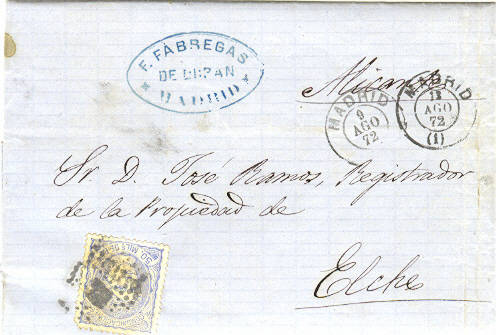 F. FABREGAS
DE
MADRID
Alicante
MADRID
9
AGO
72
MADRID
AGO
72
(1)
Sr. D. José Ramos, Registrador
de la Propiedad de
Elche
50 MILS